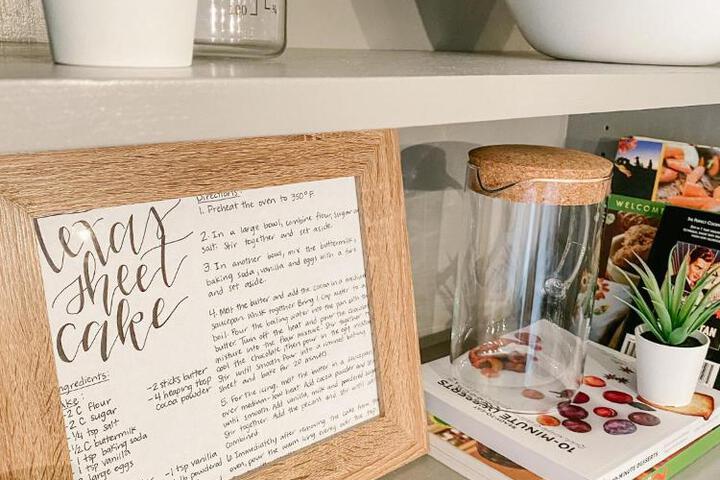 Texas
sheet
cake
ingredients:
2 C flour
2 C sugar
1/4 tsp salt
1/2 C buttermilk
1 tsp baking soda
1 tsp vanilla
large eggs
-2 sticks butter
-4 heaping tbsp
cocoa powder
-1 tsp vanilla
powdered
Directions:
1. Preheat the oven to 350°F
2. In a large bowl, combine flour, sugar and
salt. Stir together and set aside.
3. In another bowl, mix the buttermilk,
baking soda, vanilla and eggs with a
and set aside.
4. Melt the butter and add the cocoa in a medium
saucepan. Whisk together. Bring 1 cup water to a
boil. Pour the boiling water into the pan with the
butter. Turn off the heat and pour the chocolate
mixture into the flour mixture. Stir together to
cool the chocolate. Then pour in the egg mixture.
Stir until smooth. Pour into a rimmed baking
sheet and bake for 20 minutes.
5. For the icing, melt the butter in a saucepan
over medium-low heat. Add cocoa powder and
until smooth. Add vanilla, milk and powdered
Stir together. Add the pecans and stir until
combined.
6. Immediately after removing the cake from
oven, pour the warm icing over the
WELCOM
THE PERFECT
TAN
10-MINUTE
10-MINUTE DESSERTS